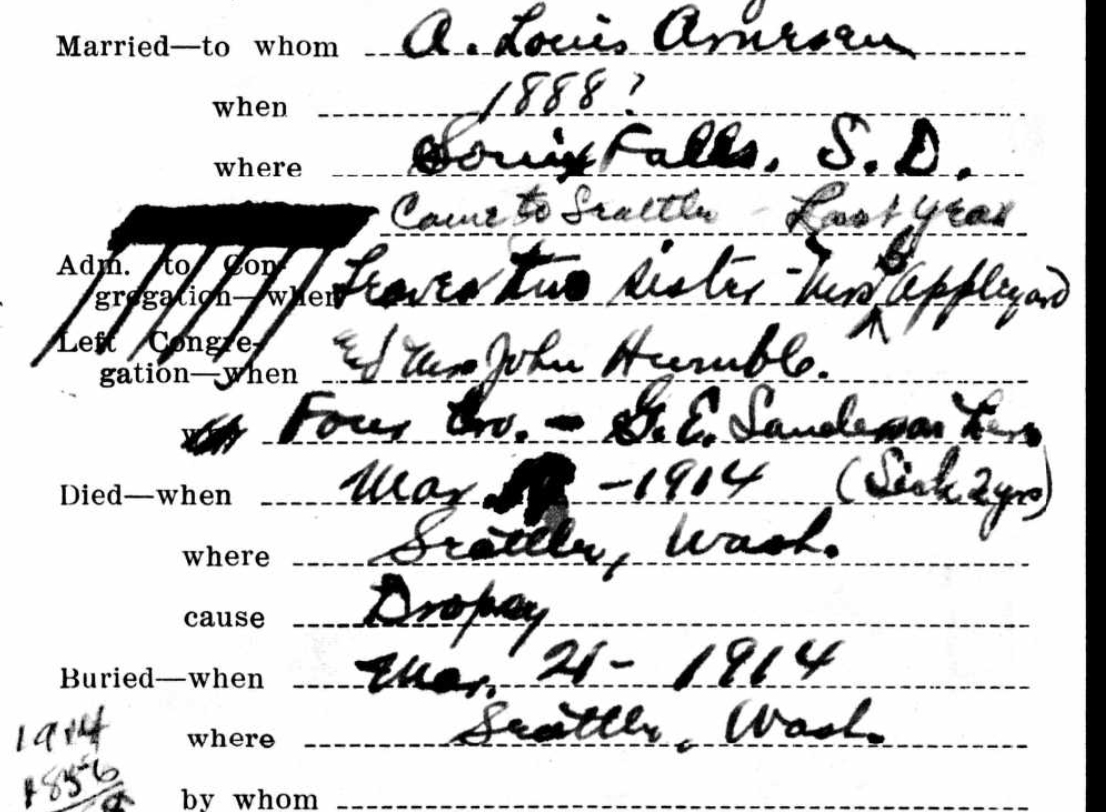 Married—to whom A. Louis Arnesen
when 1888?
where Souix Falls, S. D.
Came to Seattle - Last year
Adm. to Con-
gregation—when Leaves two sister - Mrs Appleyard
Left Congre-
gation—when Mrs John Humble.
Four bro. - G. E. Sandeman here
Died—when Mar -1914 (Sick 2 yrs)
where Seattle, Wash.
cause Dropsy
Buried—when Mar. 21 - 1914
where Seattle, Wash.
1914
1856
by whom